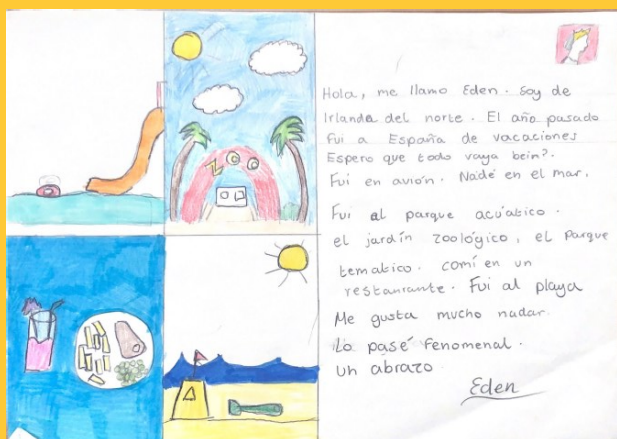 ZOO
Hola, me llamo Eden. Soy de
Irlanda del norte. El año pasado
Fui a España de vacaciones
Espero que todo vaya bein?.
Fui en avión. Nadé en el mar.
Fui al parque acúatico.
el jardín zoológico, el parque
tematico. comí en un
restaurante. Fui al playa
Me gusta mucho nadar.
Lo pasé fenomenal.
un abrazo.
Eden